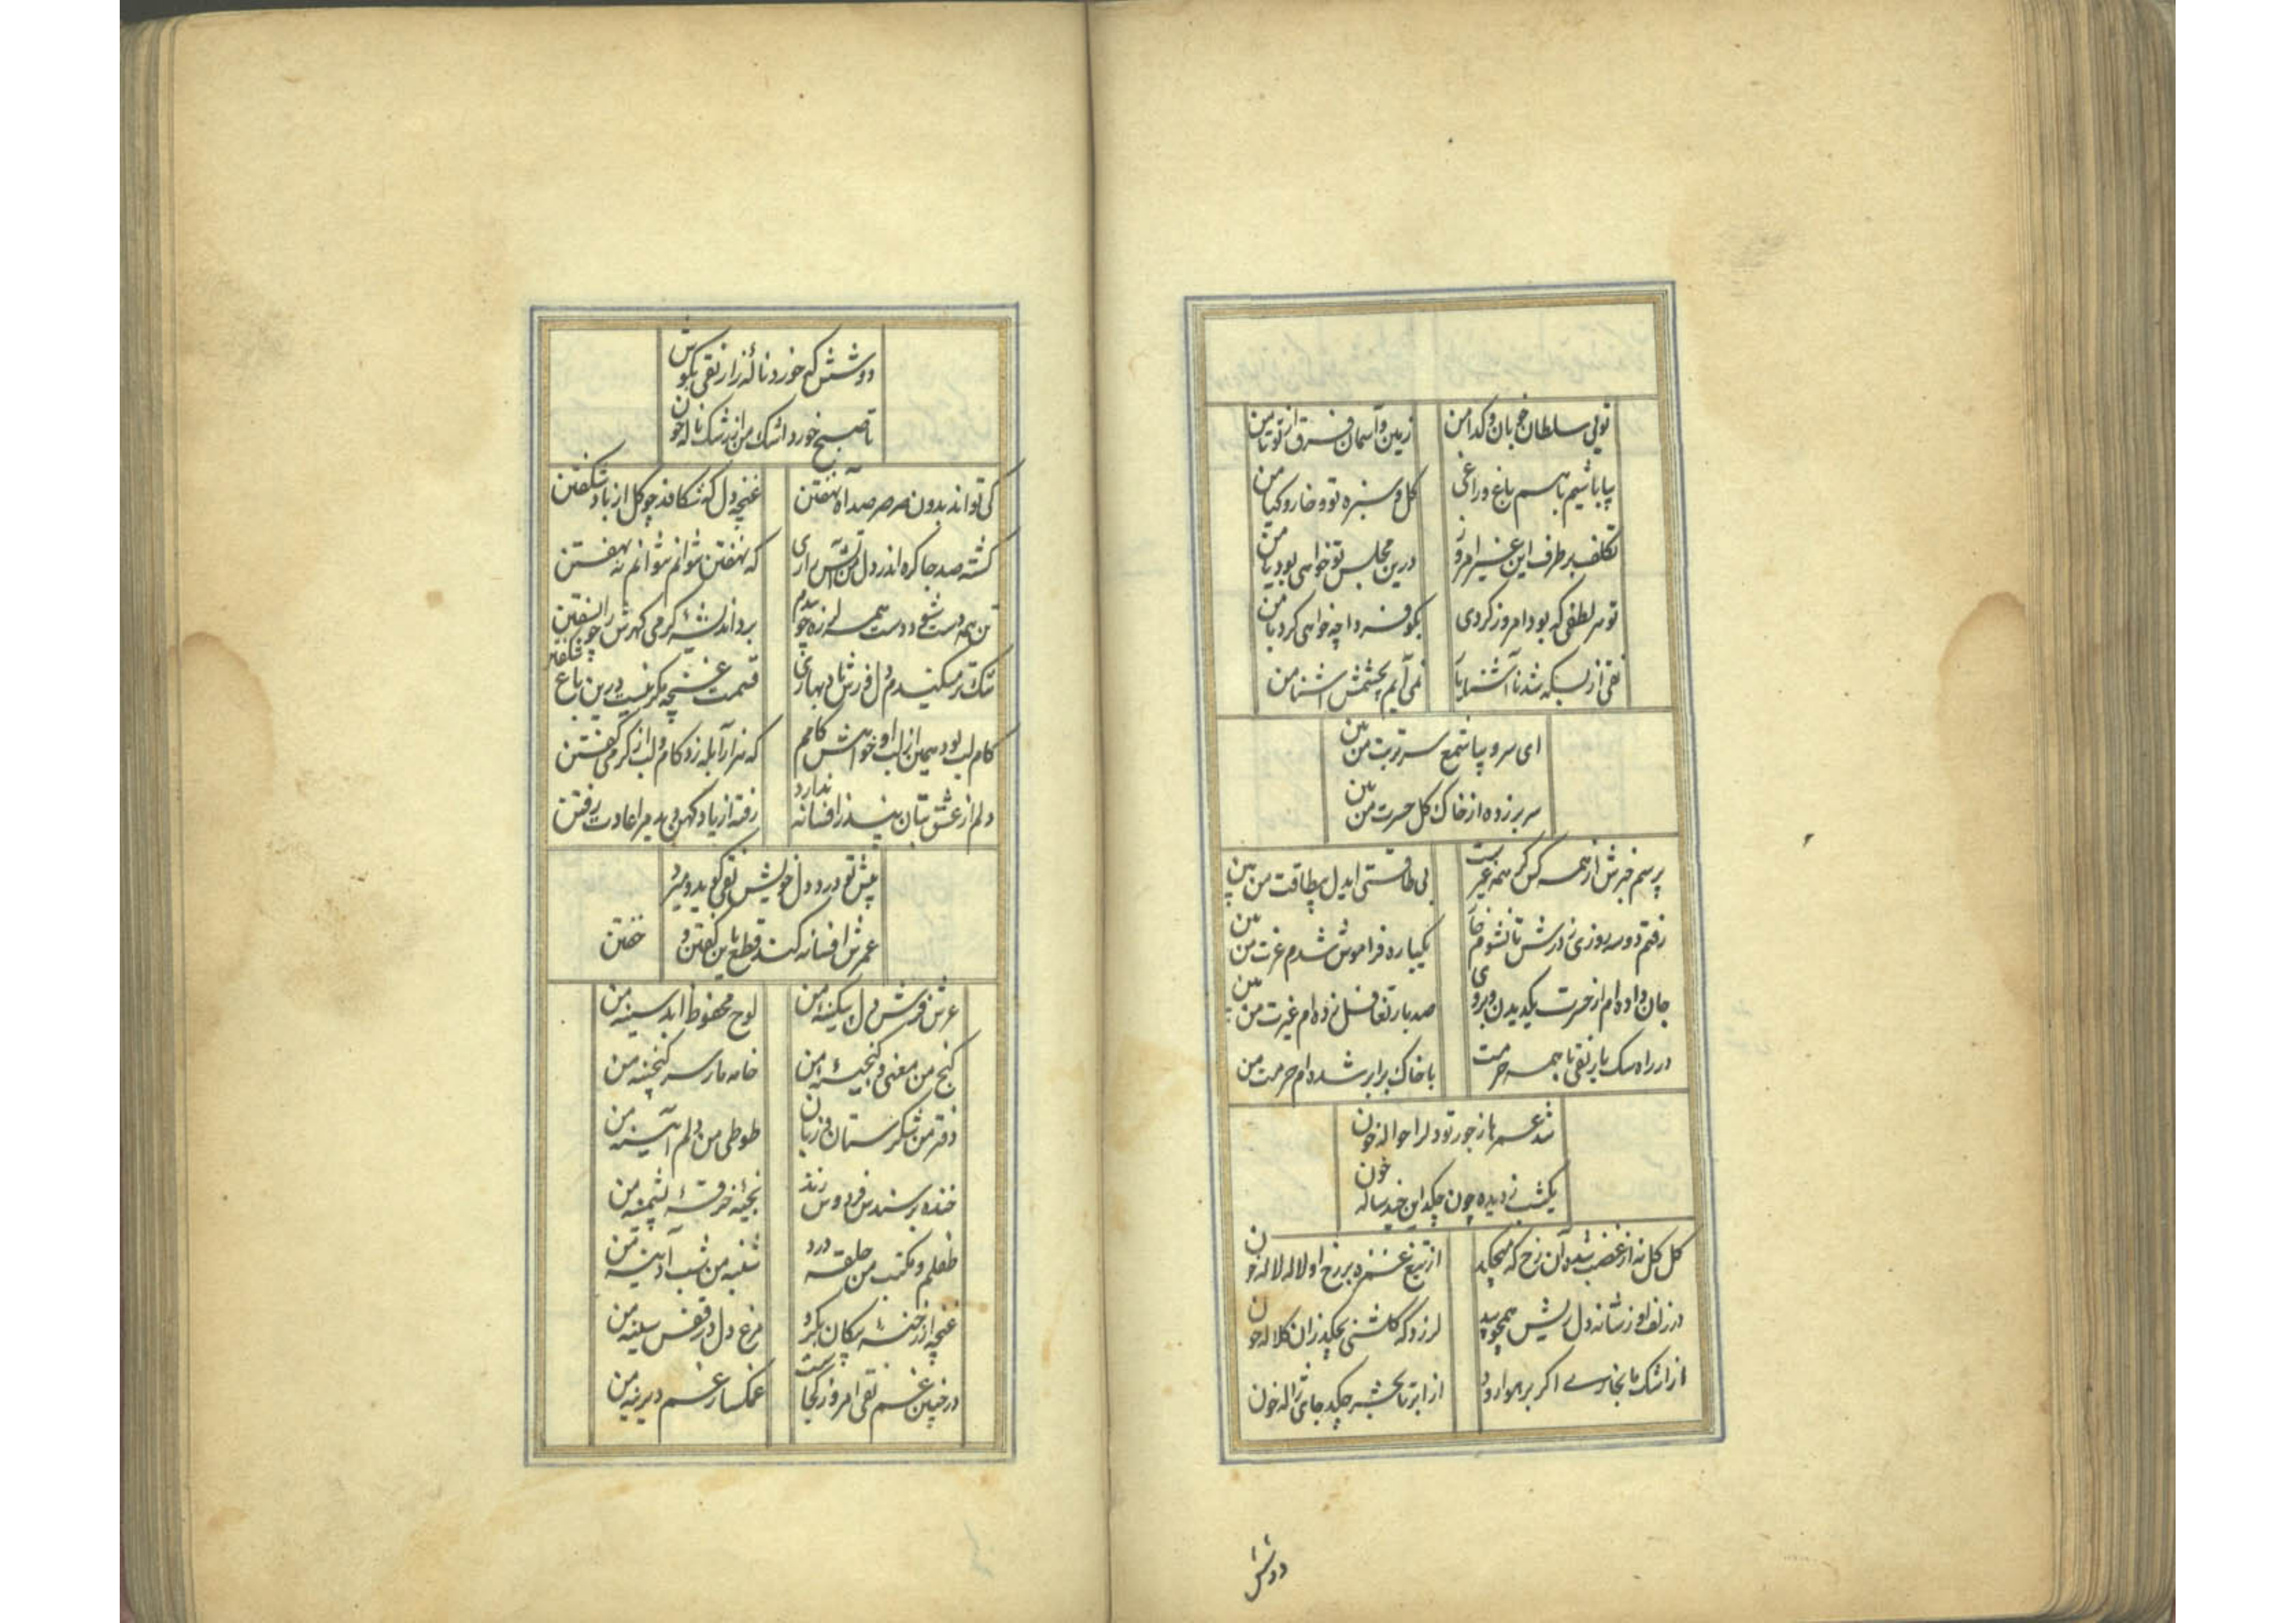 تویی سلطان خوبان و کدا من
زمین و آسمان فرق از تو تا من
بیا باشیم با هم باغ و راغی
گل و سبزه تو و خار و کیا من
تکلف بر طرف این غیر امروز
درین مجلس تو خواهی بود یا من
تو هر لطفی که بود امروز کردی
بکو فردا چه خواهی کرد با من
نقی از بسکه شد ناآشنا یار
نمی آیم بچشمش آشنا من
ای سرو بیا شمع سر تربت من بین
سر بر زده از خاک گل حسرت من بین
پرسم خبرش از همه کس گر همه غیرست
بی طاقتی ایدل بیطاقت من بین
رفتم دو سه روزی ز درش تا نشوم خوار
یکباره فراموش شدم عزت من بین
جان داده ام از حسرت یکدیدن و بر وی
صد بار تغافل زده ام غیرت من بین
در راه سک یار نقی با همه حرمت
با خاک برابر شده ام حرمت من
شد عمرها ز جور تو دلرا حواله خون
یکشب ز دیده چون چکد این چند ساله خون
گل گل نه از غضب شده آن رخ که میچکد
از تیغ غمزه بر رخ او لاله لاله خون
در زلف او ز شانه دل ریش همچو بید
لرزد که گلشنی بچکد زان کلاله خون
از اشک ما بخار اگر بر هوا رود
از ابر تا بحشر چکد جای ژاله خون
دوشش
دوشش که خورد نالهٔ زار نقی بکوش
تا صبح خورد اشک من از رشک ناله خون
کی تواند بدون صرصر صد آه نهفتن
غنچه دل که شکافد چو گل از باد شکفتن
گشته صد جا گره اندر دل من آتش رازی
که نهفتن نتوانم نتوانم نه نهفتن
تن همه دست شد و دست همه آبله زد چون
برد اندیشه گرمی گهرش را بسفتن
تنگ تر میکندم دل فرش شاد بهاری
قسمت غنچه مگر نیست درین باغ شکفتن
کام لب بود همین از لب او خواهش کامم
که هزار آبله زد کام و لب از گرمی گفتن
دلم از عشق بتان پند ز افسانه ندارد
رفته از یاد کهن پدیر اعادت رفتن
پیش تو درد دل خویش نقی گوید و میرد
عمرش افسانه کند قطع باین گفتن و
خفتن
عرش فرش دل بیکینه من
لوح محفوظ ابد سینه من
گنج من معنی و گنجینه من
خامه مار سر گنجینه من
دفتر من شکرستان و زبان
طوطی من دلم آیینه من
خنده بر سندس فردوس زند
بخیه خرقهٔ پشمینه من
طفلم و مکتب من حلقه درد
شنبه من شب آدینه من
غنچه از رخنه پیکان بکرد
مرغ دل در قفس سینه من
در چنین غم نقی امروز کجاست
غمگسار غم دیرینه من